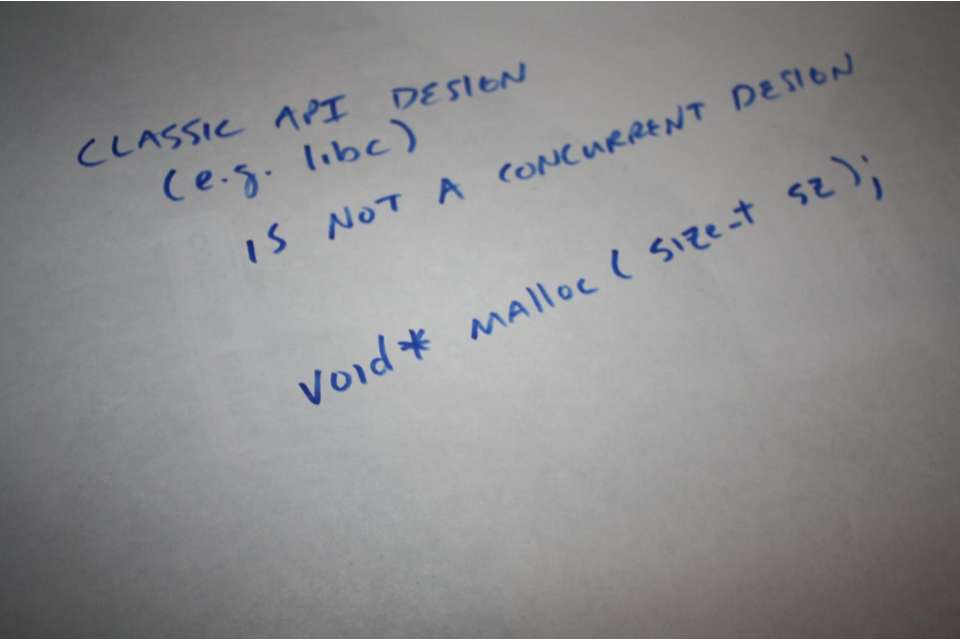 CLASSIC API DESIGN
(e.g. libc)
IS NOT A CONCURRENT DESIGN
void* malloc ( size_t sz );